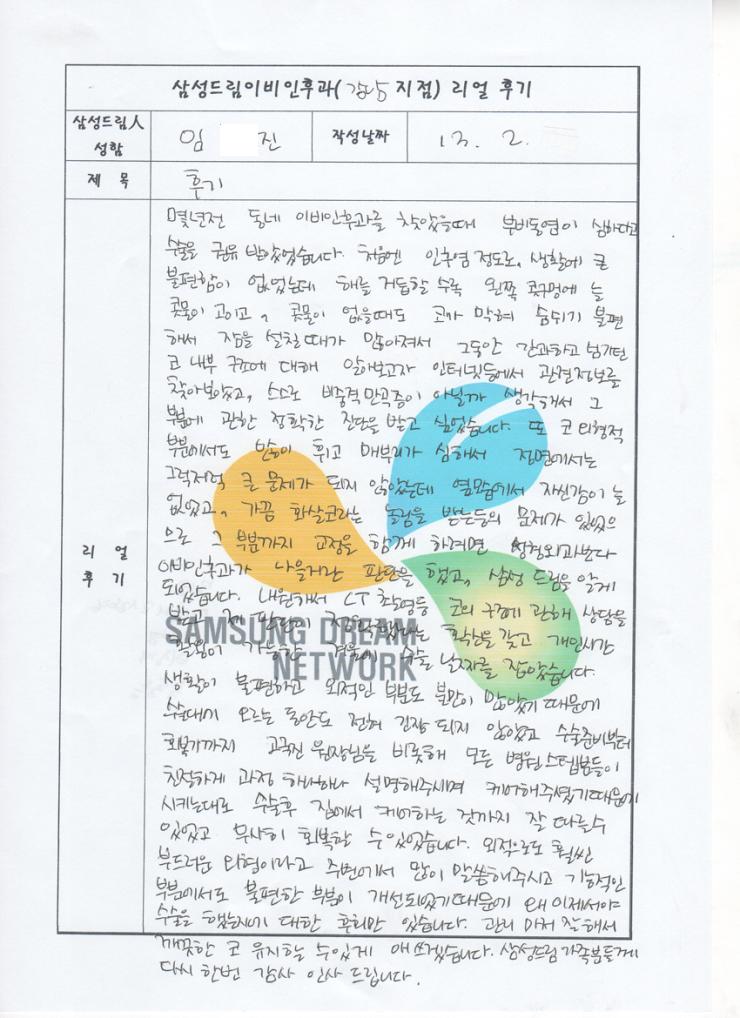 삼성드림이비인후과(강남지점) 리얼 후기
삼성드림人 성함
임 진
작성날짜
13. 2.
제 목
후기
리 얼 후 기
몇년전 동네 이비인후과를 찾았을때 부비동염이 심하다고
수술을 권유 받았었습니다. 처음엔 인후염 정도로, 생활에 큰
불편함이 없었는데 해를 거듭할 수록 왼쪽 콧구멍에 늘
콧물이 고이고, 콧물이 없을때도 코가 막혀 숨쉬기 불편
해서 잠을 설칠때가 많아져서 그동안 간과하고 넘기던
코 내부 구조에 대해 알아보고자 인터넷등에서 관련정보를
찾아보았고, 스스로 비중격만곡증이 아닐까 생각해서 그
부분에 관한 정확한 진단을 받고 싶었습니다. 또 코 외형적
부분에서도 많이 휘고 매부리가 심해서 정면에서는
그럭저럭 큰 문제가 되지 않았는데 옆모습에서 자신감이 늘
없었고, 가끔 화살코라는 놀림을 받는등의 문제가 있었으
므로 그 부분까지 교정을 함께 하려면 성형외과보다
이비인후과가 나을거란 판단을 했고, 삼성 드림을 알게
되었습니다. 내원해서 CT 촬영등 코의 구조에 관해 상담을
받고 제 판단이 확신을 갖고 개인시간
가능한 겨울에 수술 날짜를 잡았습니다.
SAMSUNG DREAM
NETWORK
생활이 불편하고 외적인 부분도 불만이 많았기 때문에
수술대에 오르는 동안도 전혀 긴장 되지 않았고 수술준비부터
회복기까지 원장님을 비롯해 모든 병원스텝분들이
친절하게 과정 하나하나 설명해주시며 케어해주셨기때문에
시키는대로 수술후 집에서 케어하는 것까지 잘 따를수
있었고 무사히 회복할 수 있었습니다. 외적으로도 훨씬
부드러운 외형이라고 주변에서 많이 말씀해주시고 기능적인
부분에서도 불편한 부분이 개선되었기때문에 왜 이제서야
수술을 했는지에 대한 후회만 있습니다. 관리 마저 잘해서
깨끗한 코 유지할 수있게 애쓰겠습니다. 삼성드림 가족분들께
다시 한번 감사 인사 드립니다.